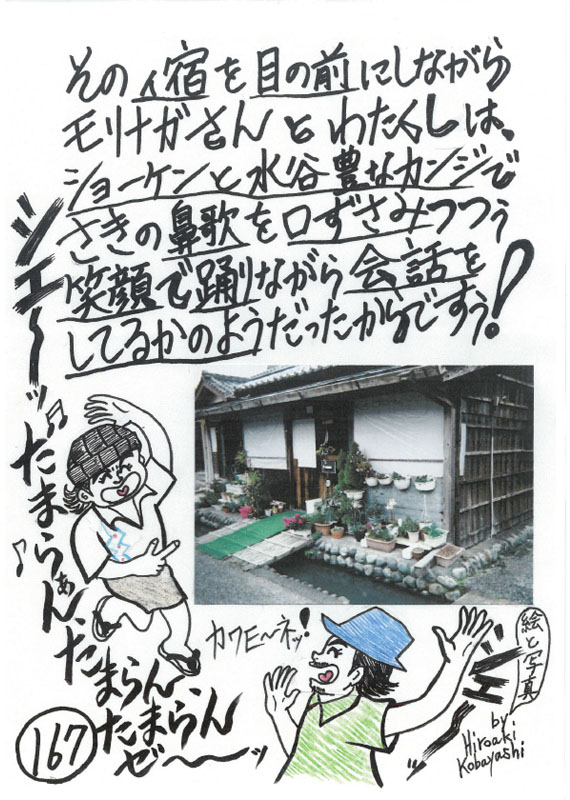 そのイ宿を目の前にしながら
モリナガさんとわたくしは、
ショーケンと水谷豊なカンジで
さきの鼻歌を口ずさみつつぅ
笑顔で踊りながら会話を
してるかのようだったからですぅ!
ジェ〜ッ
たまらぁん、た
まらん、
たまらん
ゼ〜〜ッ
カワE〜ネッ!
絵と写真
by
Hiroaki
Kobayashi
167